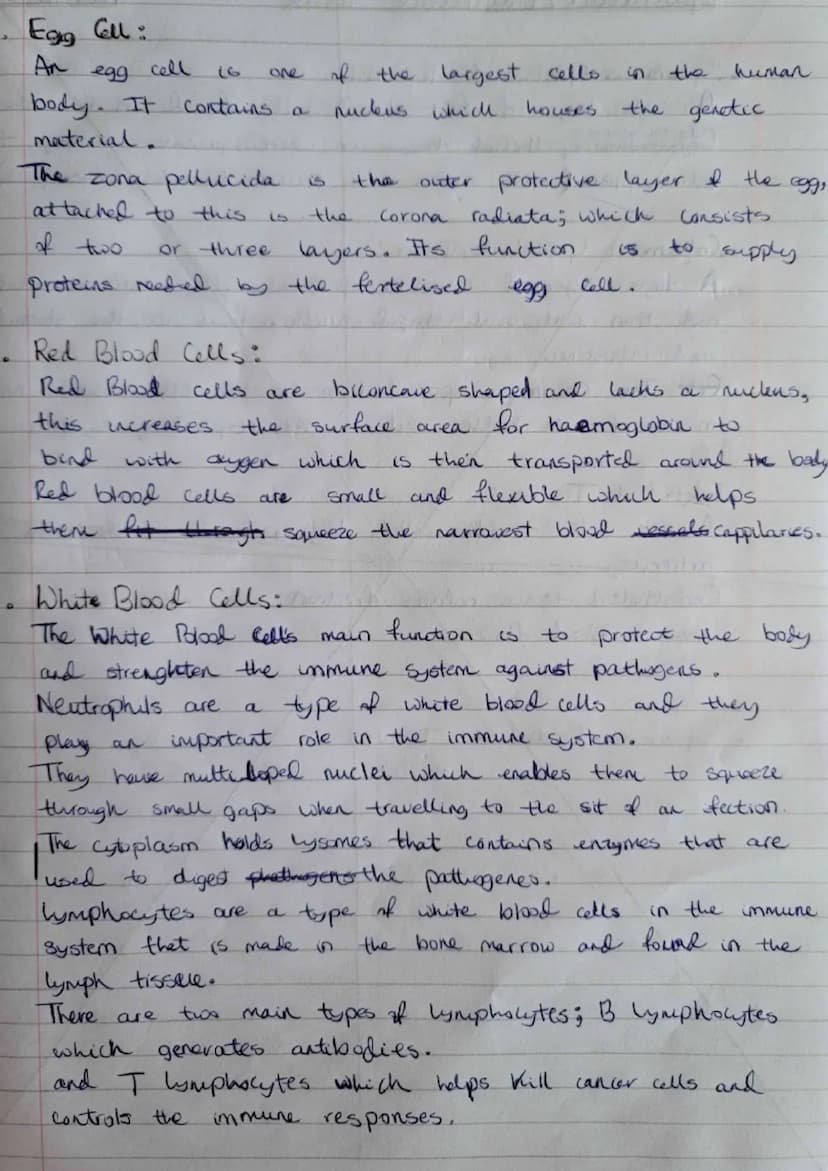 . Egg Cell:
An egg cell is one of the largest cells in the human
body. It contains a nucleus which houses the genetic
material.
The zona pellucida is the outer protective layer of the egg,
attached to this is the corona radiata; which consists
of two or three layers. Its function is to supply
proteins needed by the fertelised egg cell.
. Red Blood Cells:
Red Blood cells are biconcave shaped and lacks a nucleus,
this increases the surface area for haemoglobin to
bind with oxygen which is then transported around the body
Red blood cells are small and flexible which helps
them fit through squeeze the narrowest blood vessels cappilaries.
. White Blood Cells:
The White Blood Cells main function is to protect the body
and strenghten the immune system against pathogens.
Neutrophils are a type of white blood cells and they
play an important role in the immune system.
They have multiloped nuclei which enables them to squeeze
through small gaps when travelling to the sit of an fection.
The cytoplasm holds lysomes that contains enzymes that are
used to digest phathogens the pathogenes.
lymphocytes are a type of white blood cells in the immune
system that is made in the bone marrow and found in the
lymph tissue.
There are two main types of lymphocytes; B lymphocytes
which generates antibodies.
and T lymphocytes which helps kill cancer cells and
controls the immune responses.